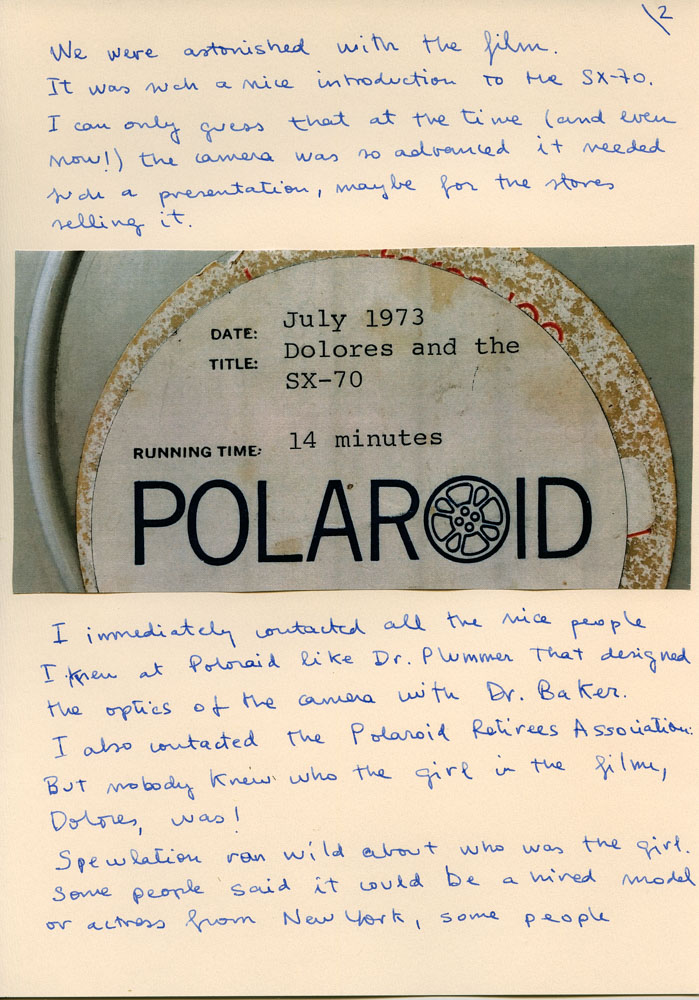 2
We were astonished with the film.
It was such a nice introduction to the SX-70.
I can only guess that at the time (and even
now!) the camera was so advanced it needed
such a presentation, maybe for the stores
selling it.
DATE: July 1973
TITLE: Dolores and the
SX-70
RUNNING TIME: 14 minutes
POLAROID
I immediately contacted all the nice people
I knew at Poloraid like Dr. Plummer that designed
the optics of the camera with Dr. Baker.
I also contacted the Polaroid Retirees Association.
But nobody knew who the girl in the film,
Dolores, was!
Speculation ran wild about who was the girl.
Some people said it could be a hired model
or actress from New York, some people